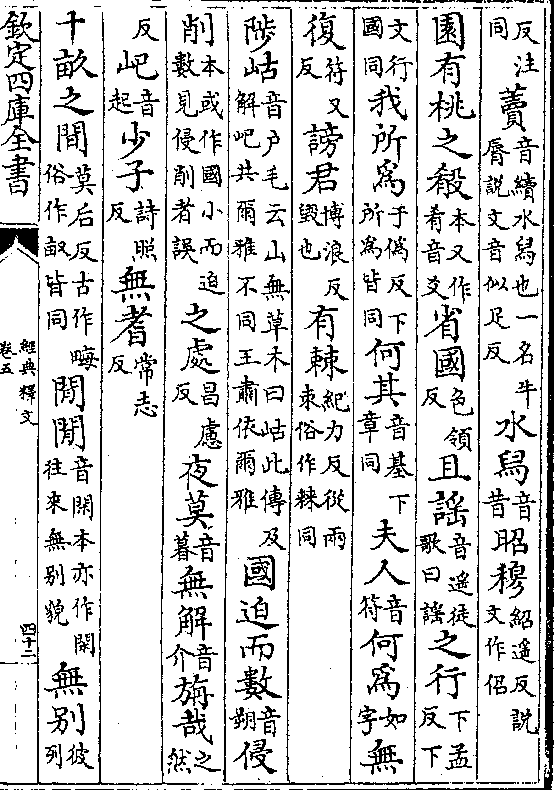 反注同藚音續水舄也一名牛脣說文音似足反水舄音昔昭穆紹遥反說文作佋
園有桃之殽本又作肴音爻省國色領反且謡音遥徒歌曰謡之行下孟反下
文行國同我所為于偽反下所為皆同何其音基下章同夫人音符何為如字無
復符又反謗君博浪反毀也有棘紀力反從兩朿俗作𣗥同
陟岵音户毛云山無草木曰岵此傳及解屺共爾雅不同王肅依爾雅國迫而數音朔侵
削本或作國小而迫數見侵削者誤之處昌慮反夜莫音暮無解音介旃哉之然
反屺音起少子詩照反無耆常志反
十畝之間莫后反古作畮俗作畞皆同閒閒音閑本亦作閑往來無别貌無别彼列
欽定四庫全書
經典釋文
卷五
四十二